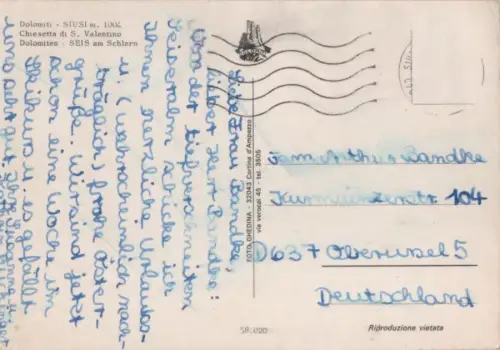 Dolomiti - SIUSI m. 1002
Chiesetta di S. Valentino
Dolomiten - SEIS am Schlern
Liebe Frau Bandke,
lieber Herr Bandke!
Von der tiefverschneiten
Seiseralm schicke ich
Ihnen herzliche Urlaubs-
u. (wahrscheinlich nach-
träglich) frohe Oster-
grüße. Wir sind jetzt
schon eine Woche im
u. es gefällt
uns sehr gut.
FOTO GHEDINA - 32043 Cortina d'Ampezzo
via verocai 45 - tel. 3605
Fam. Arthur Bandke
104
D637 Oberursel 5
Deutschland
58.020
Riproduzione vietata